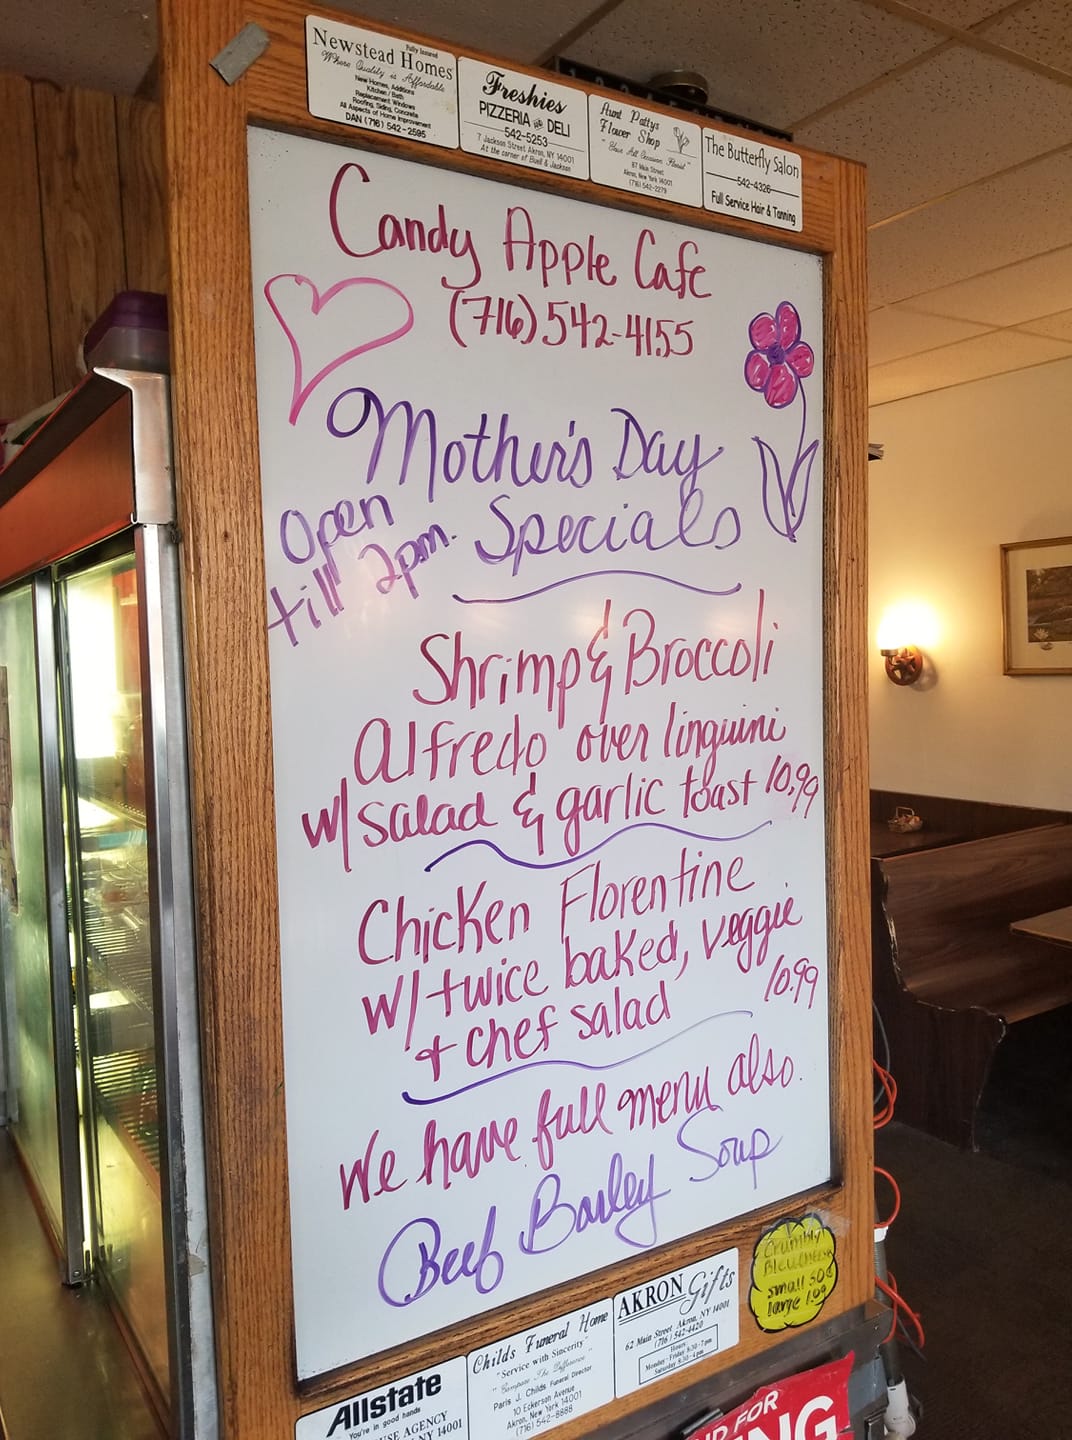 Newstead Homes
Fully Insured
Where Quality is Affordable
New Homes, Additions
Kitchen / Bath
Replacement Windows
Roofing, Siding, Concrete
All Aspects of Home Improvement
DAN (716) 542-2595
Freshies
PIZZERIA AND DELI
542-5253
7 Jackson Street Akron, NY 14001
At the corner of Buell & Jackson
Aunt Pattys
Flower Shop
"Your All Occasion Florist"
87 Main Street
Akron, New York 14001
(716) 542-2279
The Butterfly Salon
542-4326
Full Service Hair & Tanning
Candy Apple Cafe
(716) 542-4155
Mother's Day
Specials
Open
till 2pm.
Shrimp & Broccoli
Alfredo over linguini
w/ salad & garlic toast 10.99
Chicken Florentine
w/ twice baked, veggie
+ chef salad 10.99
We have full menu also.
Beef Barley Soup
Crumbly
Bleu Cheese
small 50¢
large 1.00
Allstate
You're in good hands
USE AGENCY
NY 14001
Childs Funeral Home
"Service with Sincerity"
"Compare The Difference"
Paris J. Childs Funeral Director
10 Eckerson Avenue
Akron, New York 14001
(716) 542-8888
AKRON Gifts
62 Main Street Akron, NY 14001
(716) 542-4420
Hours
Monday - Friday 8:30 - 7 pm
Saturday 8:30 - 4 pm
FOR
NG